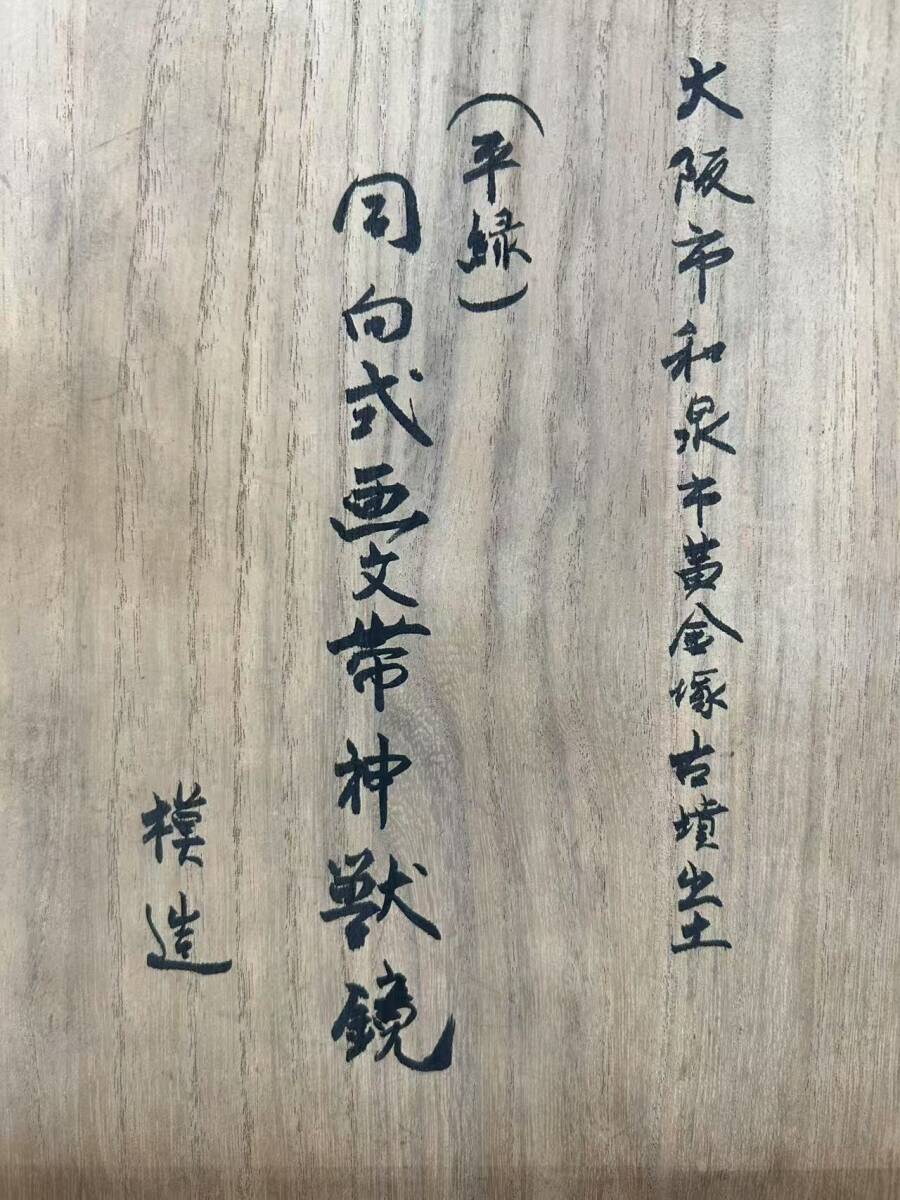 大阪市和泉市黄金塚古墳出土
（平縁）
同向式画文帯神獣鏡
模造